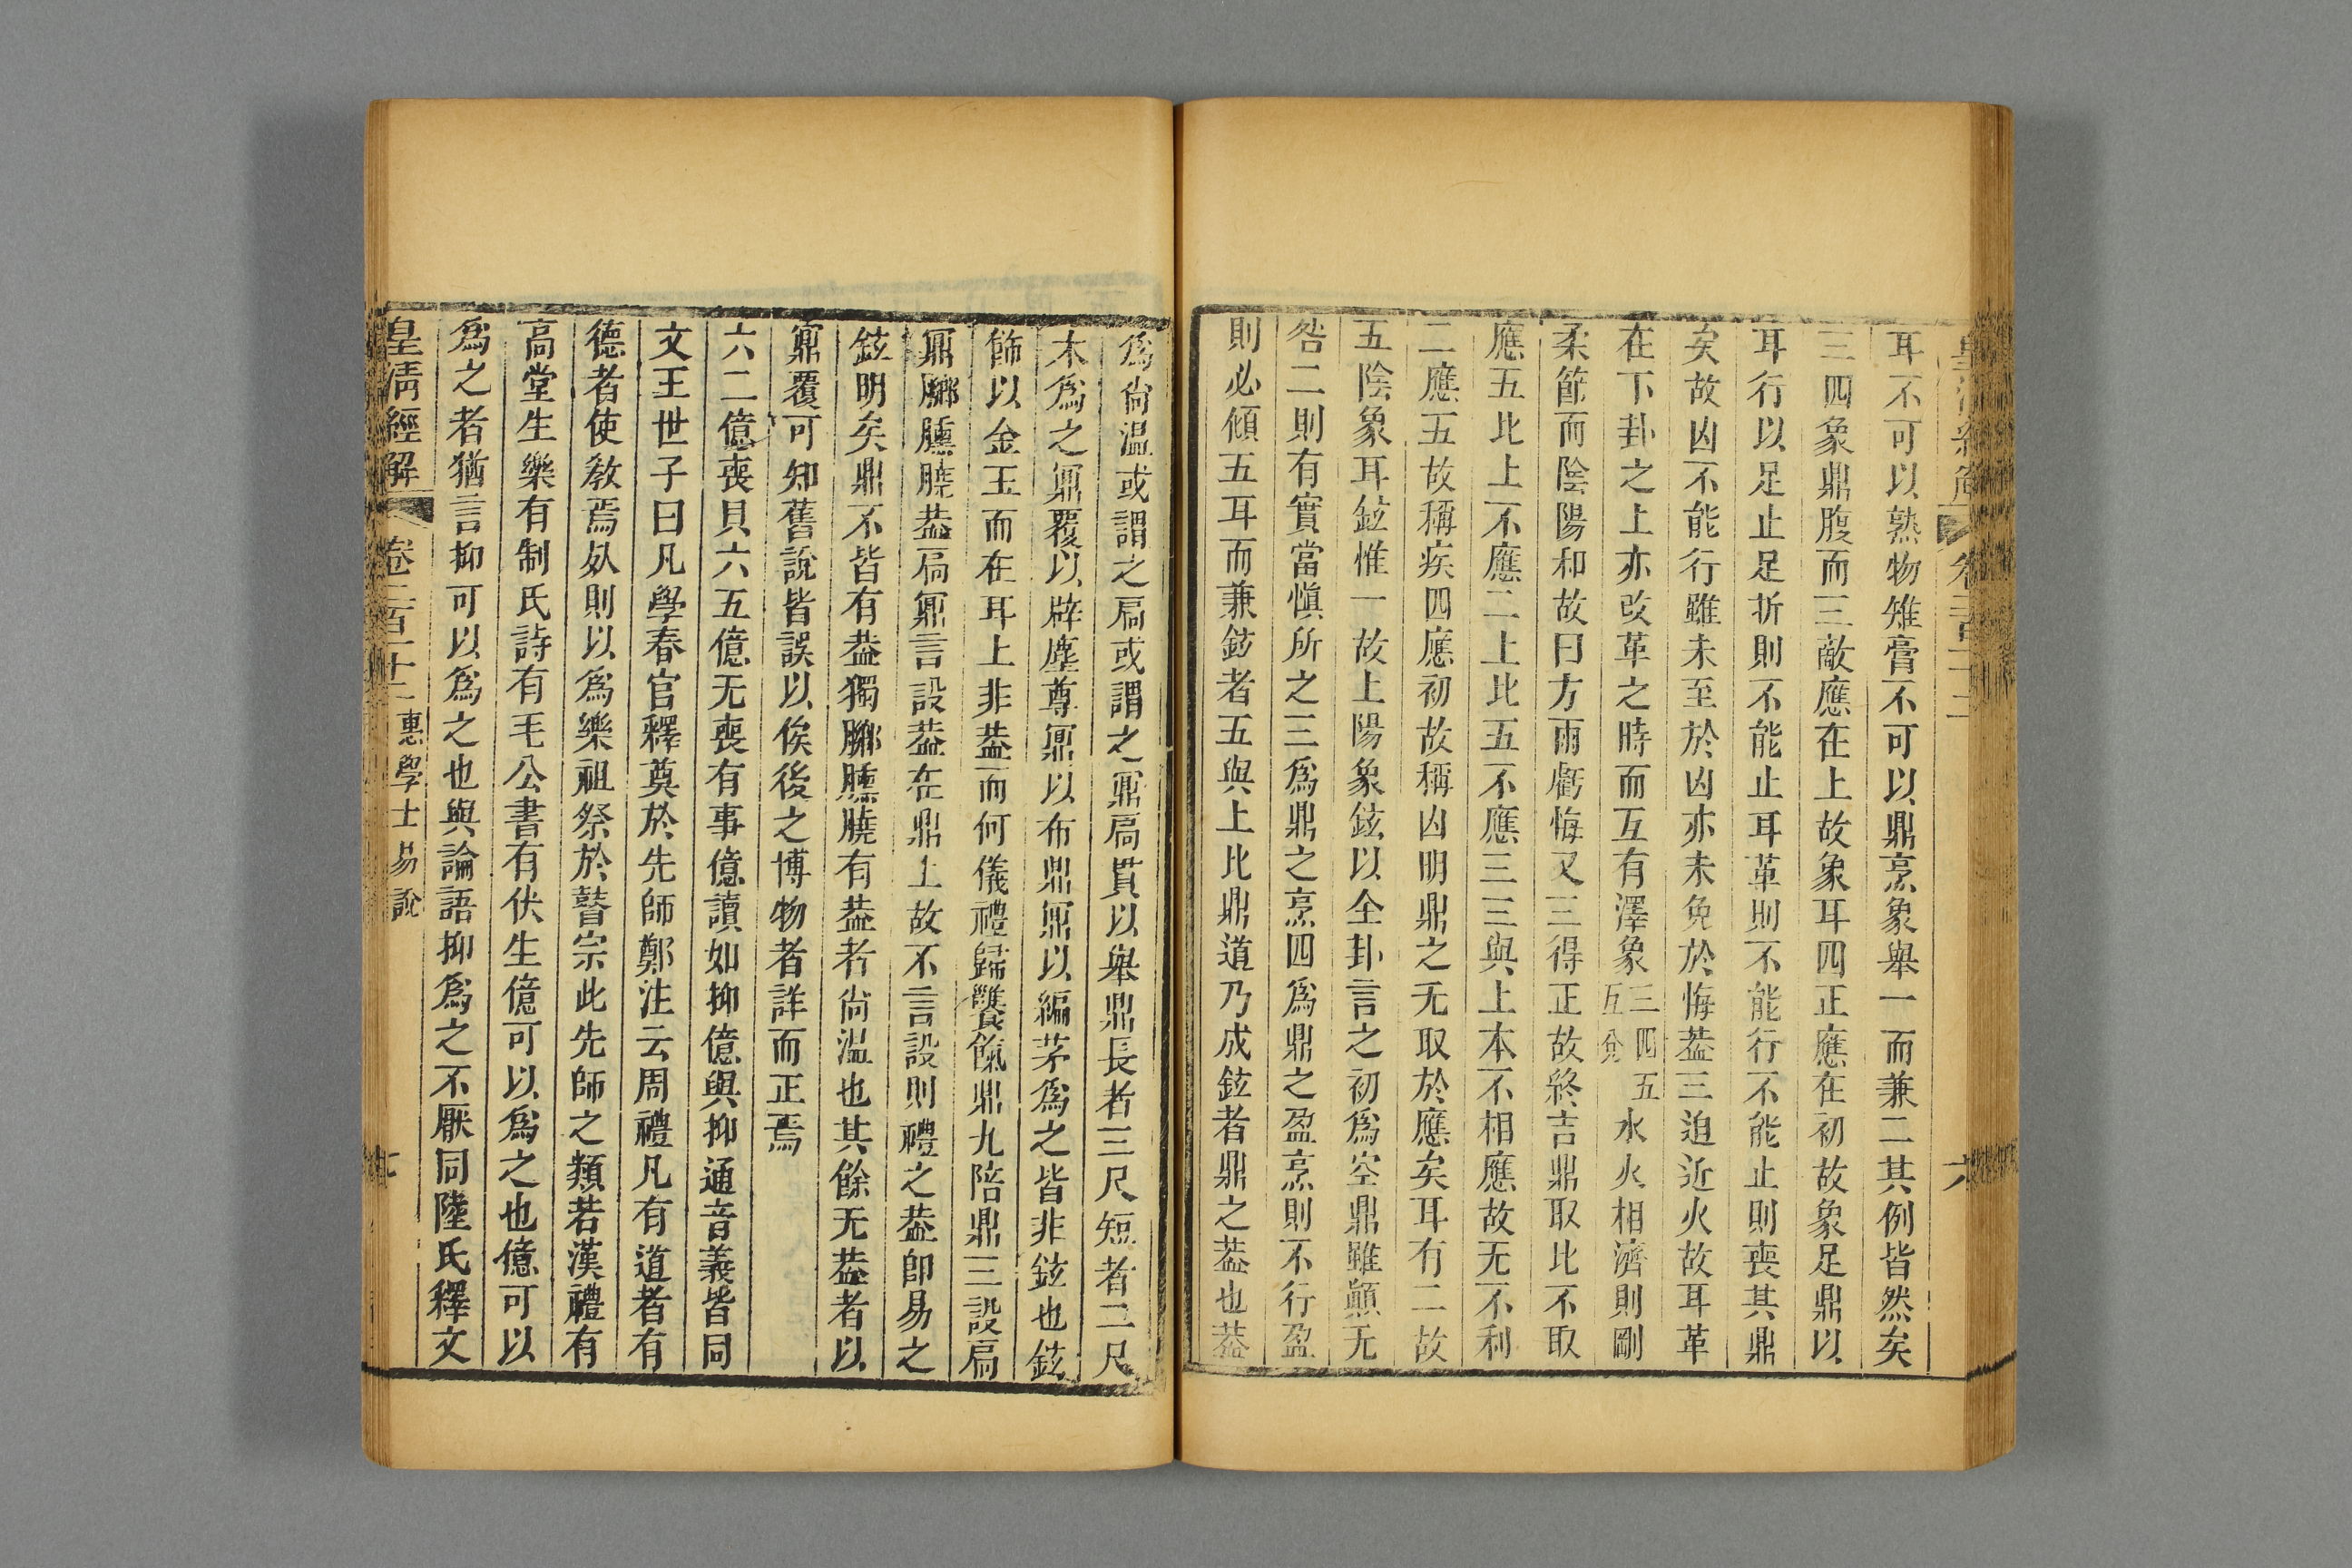 耳不可以熟物雉膏不可以鼎烹象舉一而兼二其例皆然矣
三四象鼎腹而三敵應在上故象耳四正應在初故象足鼎以
耳行以足止足折則不能止耳革則不能行不能止則喪其鼎
矣故凶不能行雖未至於凶亦未免於悔葢三迫近火故耳革
在下卦之上亦改革之時而互有澤象三四五五兌水火相濟則剛
柔節而陰陽和故曰方雨虧悔又三得正故終吉鼎取比不取
應五比上不應二上比五不應三三與上本不相應故无不利
二應五故稱疾四應初故稱凶明鼎之无取於應矣耳有二故
五陰象耳鉉惟一故上陽象鉉以全卦言之初爲空鼎雖顚无
咎二則有實當愼所之三爲鼎之烹四爲鼎之盈烹則不行盈
則必傾五耳而兼鉉者五與上比鼎道乃成鉉者鼎之葢也葢
爲尙温或謂之扃或謂之鼏扃貫以舉鼎長者三尺短者二尺
木爲之鼏覆以辟塵尊鼏以布鼎鼏以編茅爲之皆非鉉也鉉
飾以金玉而在耳上非葢而何儀禮歸饔餼鼎九陪鼎三設扃
鼏膷臐膮葢扃鼏言設葢在鼎上故不言設則禮之葢卽易之
鉉明矣鼎不皆有葢獨膷臐膮有葢者尙温也其餘无葢者以
鼏覆可知舊說皆誤以俟後之博物者詳而正焉
六二億喪貝六五億无喪有事億讀如抑億與抑通音義皆同
文王世子曰凡學春官釋奠於先師鄭注云周禮凡有道者有
德者使敎焉㱙則以爲樂祖祭於瞽宗此先師之類若漢禮有
高堂生樂有制氏詩有毛公書有伏生億可以爲之也億可以
爲之者猶言抑可以爲之也與論語抑爲之不厭同陸氏釋文
皇淸經解 卷二百十二 惠學士易說 七